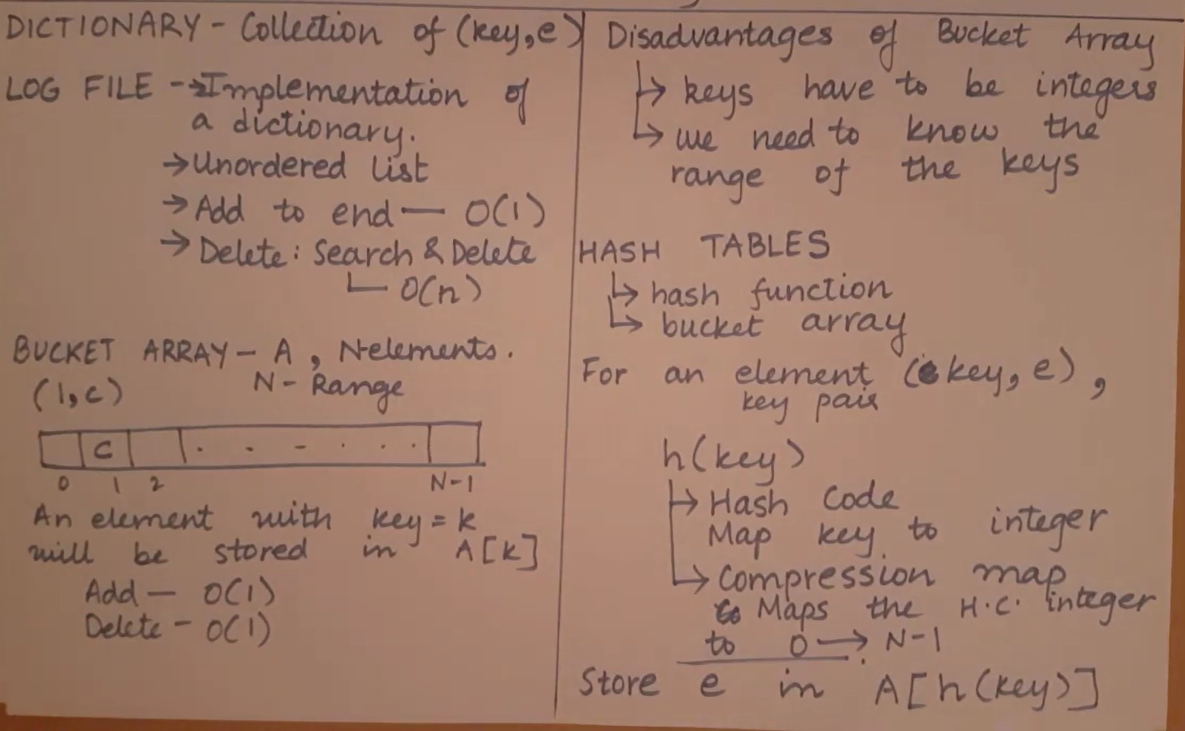 DICTIONARY - Collection of (key,e)
LOG FILE -> Implementation of
a dictionary.
→ Unordered list
→ Add to end — O(1)
→ Delete: Search & Delete
O(n)
BUCKET ARRAY - A , N-elements.
(1,c) N - Range
C . . - . . .
0 1 2 N-1
An element with key = k
will be stored in A[k]
Add — O(1)
Delete - O(1)
Disadvantages of Bucket Array
↳ keys have to be integers
↳ we need to know the
range of the keys
HASH TABLES
↳ hash function
↳ bucket array
For an element (key, e),
key pair
h(key)
↳ Hash Code
Map key to integer
↳ Compression map
Maps the H.C. integer
to 0 → N-1
Store e in A[h(key)]